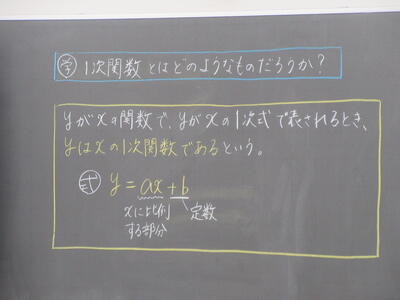 学 1次関数とはどのようなものだろうか？
yがxの関数で、yがxの1次式で表されるとき、
yはxの1次関数であるという。
式 y = ax + b
xに比例 定数
する部分